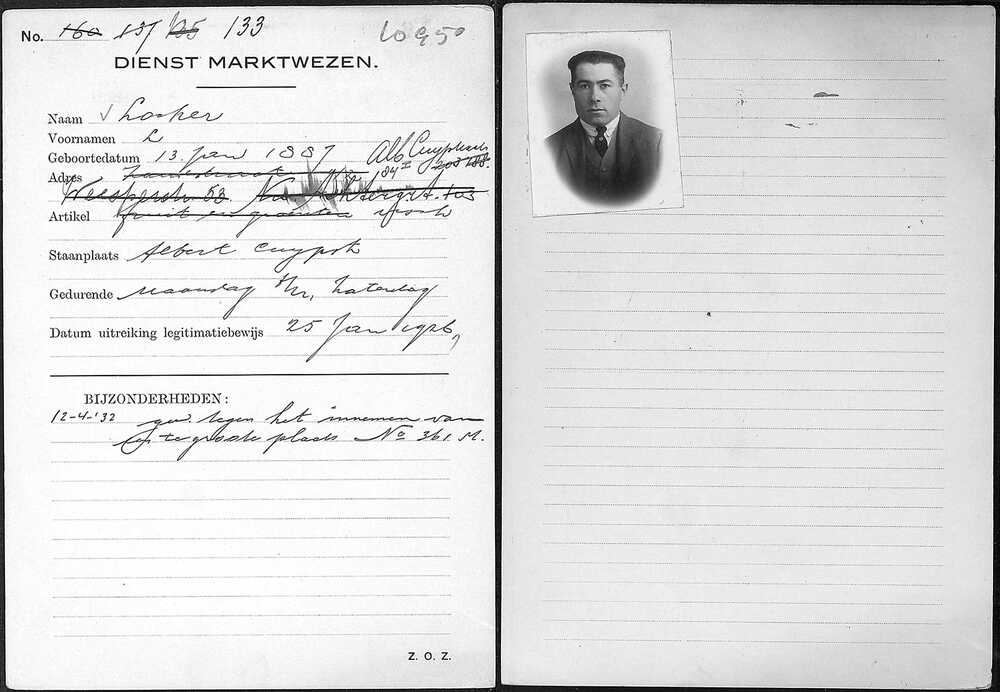 No. 160 137 125 133 10950
DIENST MARKTWEZEN.
Naam Looper
Voornamen L
Geboortedatum 13 Jan 1887 Alb Cuypstr
Adres 184 II 203 188.
Weesperstr 53
Artikel fruit en groenten visch
Staanplaats Albert Cuypstr
Gedurende Maandag t/m Zaterdag
Datum uitreiking legitimatiebewijs 25 Jan 1926,
BIJZONDERHEDEN:
12-4-'32 gew. tegen het innemen van
te groote plaats No 36 M.
Z. O. Z.